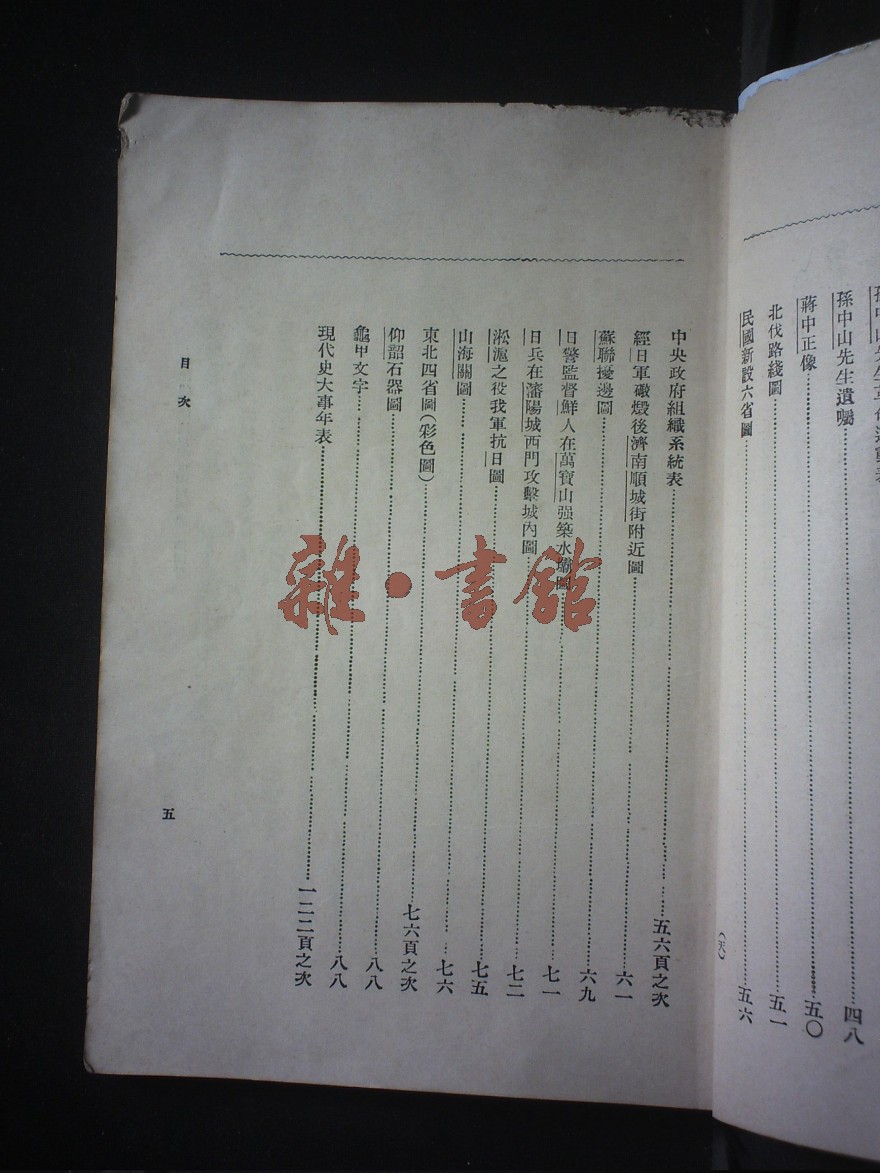 孫中山先生遺囑……四八
蔣中正像……五〇
北伐路綫圖……五一
民國新設六省圖……五六
中央政府組織系統表……五六頁之次
經日軍礮燬後濟南順城街附近圖……六一
蘇聯擾邊圖……六九
日警監督鮮人在萬寶山强築水壩圖……七一
日兵在瀋陽城西門攻擊城內圖……七二
淞滬之役我軍抗日圖……七五
山海關圖……七六
東北四省圖(彩色圖)……七六頁之次
仰韶石器圖……八八
龜甲文字……八八
現代史大事年表……一二二頁之次
目次
五
雜·書館